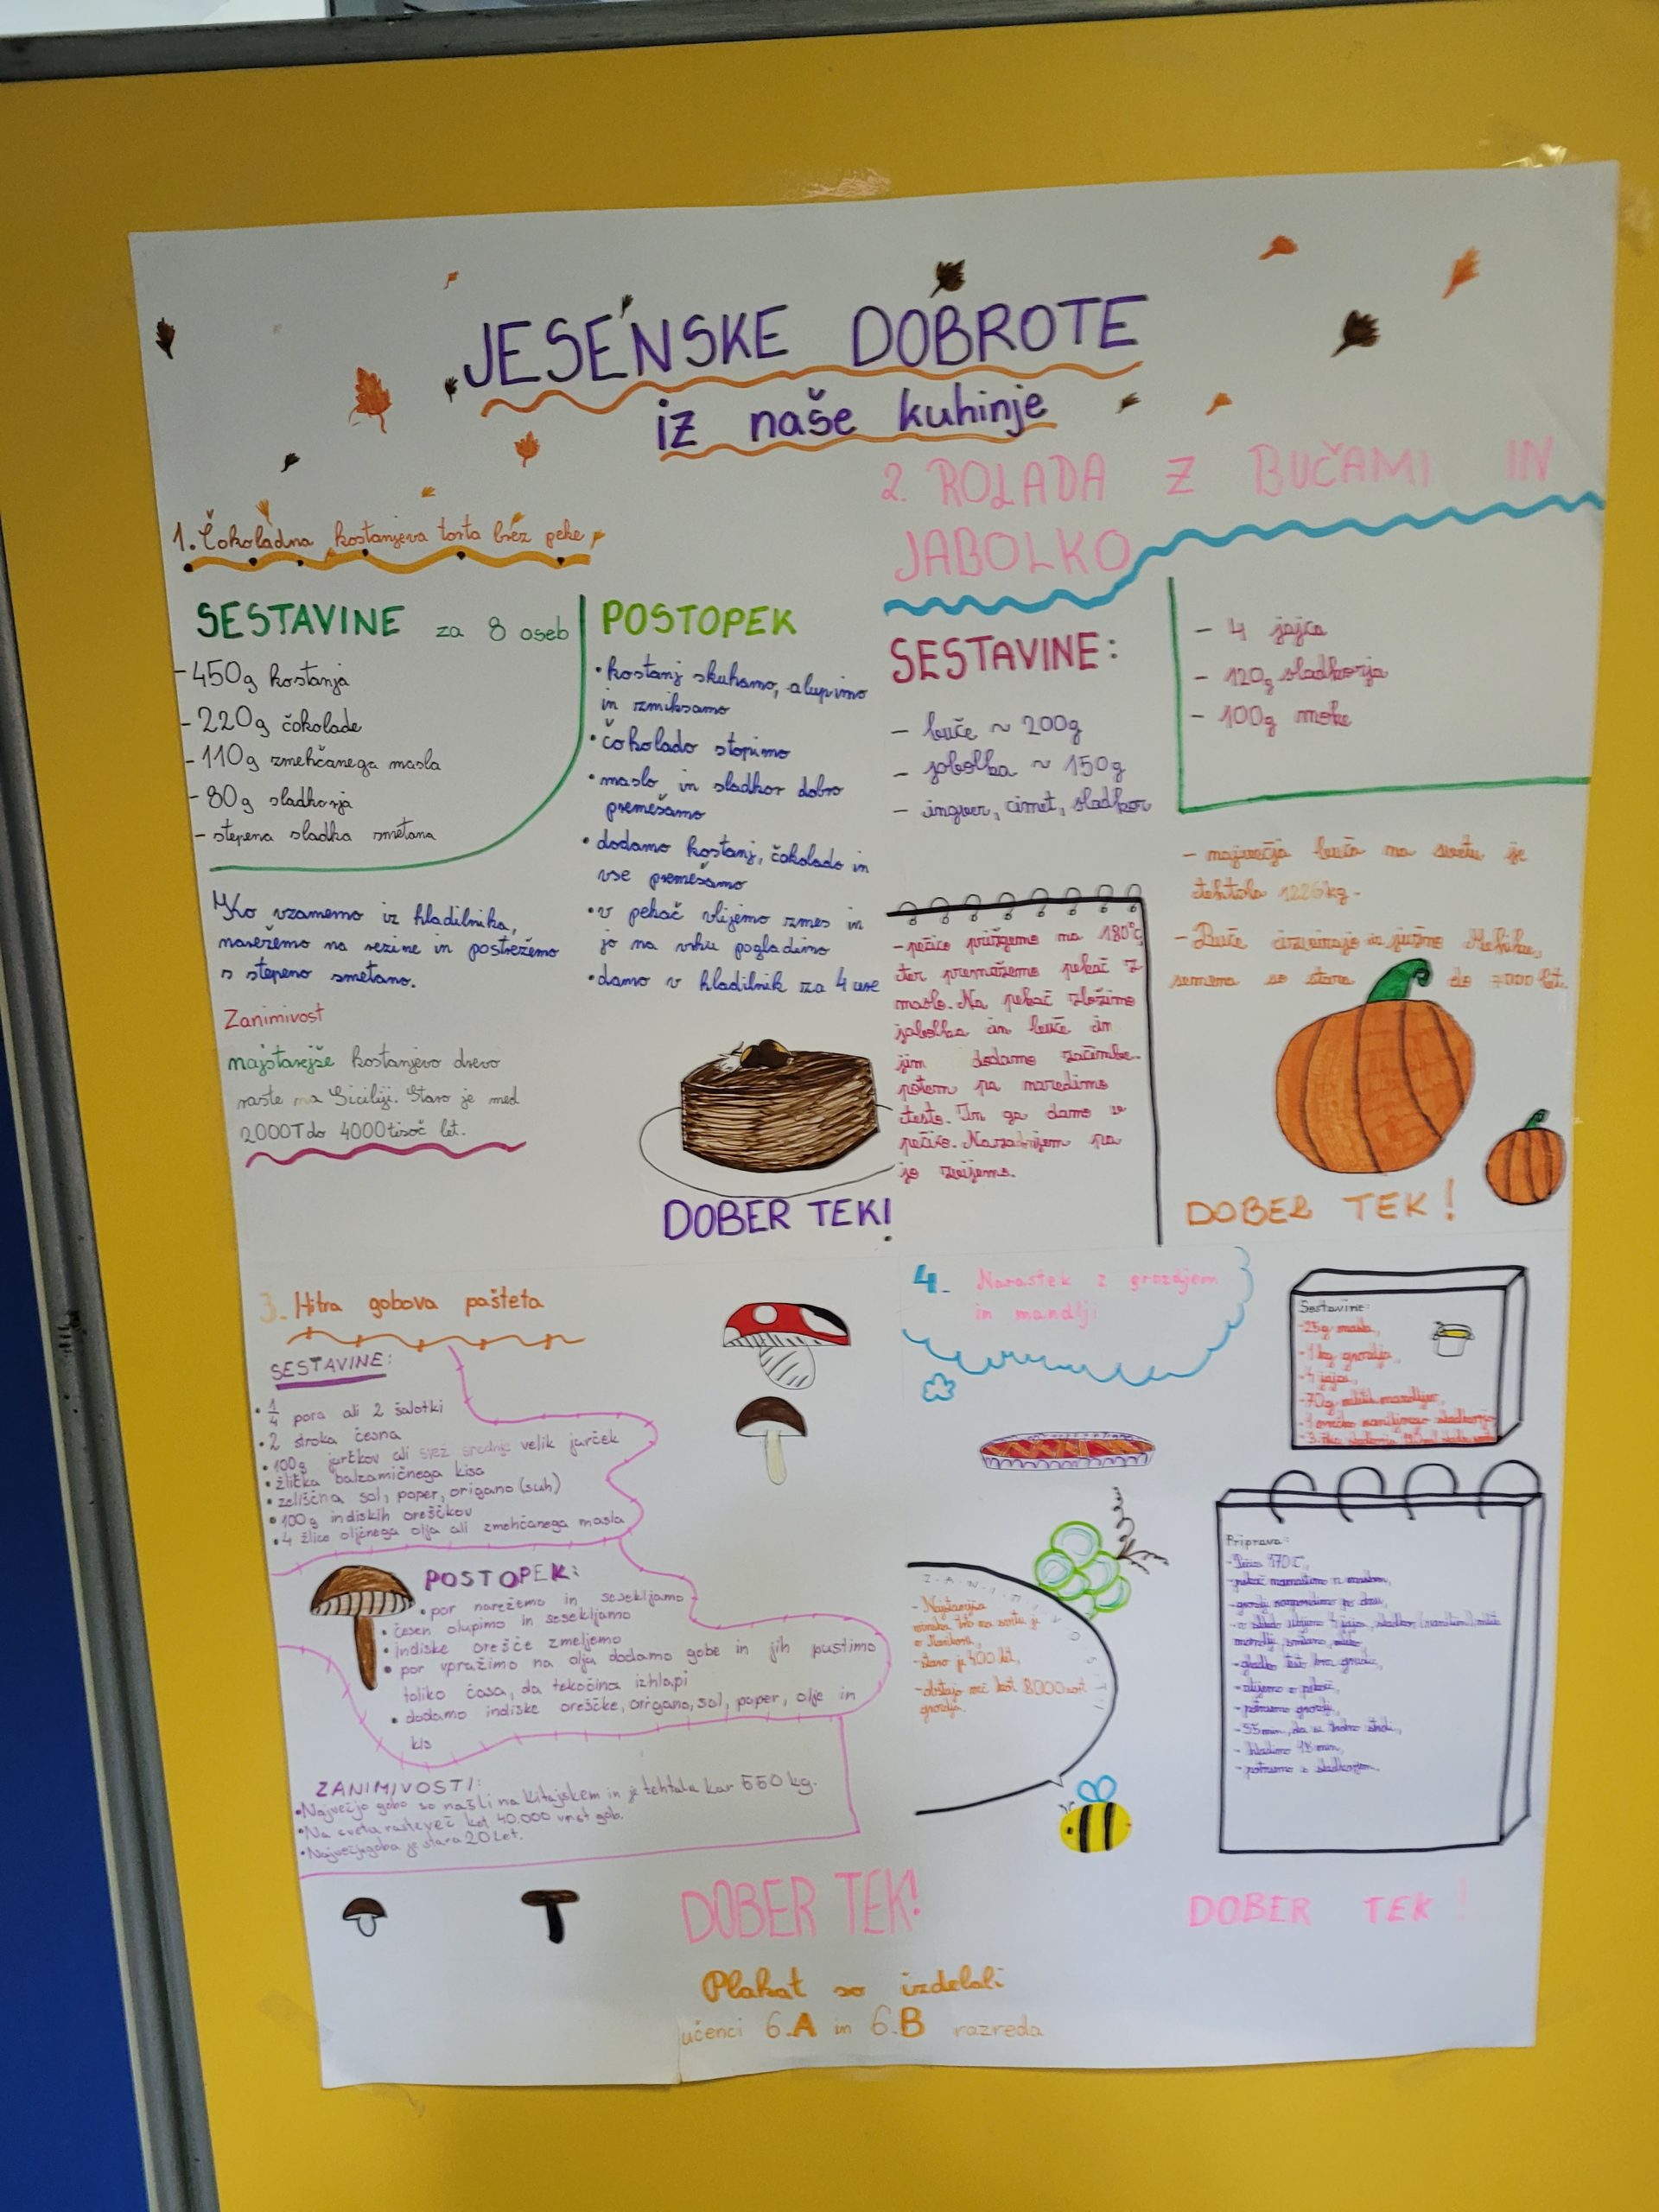 JESENSKE DOBROTE
iz naše kuhinje
1. Čokoladna kostanjeva torta brez peke
SESTAVINE za 8 oseb
- 450g kostanja
- 220g čokolade
- 110g zmehčanega masla
- 80g sladkorja
- stepena sladka smetana
Ko vzamemo iz hladilnika,
narežemo na rezine in postrežemo
s stepeno smetano.
Zanimivost
najstarejše kostanjevo drevo
raste na Siciliji. Staro je med
2000T do 4000tisoč let.
POSTOPEK
• kostanj skuhamo, olupimo
in zmiksamo
• čokolado stopimo
• maslo in sladkor dobro
premešamo
• dodamo kostanj, čokolado in
vse premešamo
• v pekač vlijemo zmes in
jo na vrhu pogladimo
• damo v hladilnik za 4 ure
DOBER TEK!
2. ROLADA Z BUČAMI IN
JABOLKO
SESTAVINE:
- buče ~ 200g
- jabolka ~ 150g
- ingver, cimet, sladkor
- 4 jajca
- 120g sladkorja
- 100g moke
- pečico prižgemo na 180°C
ter premažemo pekač z
maslo. Na pekač zložimo
jabolka in buče in
jim dodamo začimbe.
potem pa naredimo
testo. In ga damo v
pečico. Nazadnjem pa
jo zvijemo.
- največja buča na svetu je
tehtala 1226kg.
- Buče izvirajo iz južne Mehike,
semena so stara do 7000 let.
DOBER TEK!
3. Hitra gobova pašteta
SESTAVINE:
• 1/4 pora ali 2 šalotki
• 2 stroka česna
• 100g jurčkov ali svež srednje velik jurček
• žlička balzamičnega kisa
• zeliščna sol, poper, origano (suh)
• 100g indiskih oreščkov
• 4 žlice oljčnega olja ali zmehčanega masla
POSTOPEK:
• por narežemo in sesekljamo
• česen olupimo in sesekljamo
• indiske orešče zmeljemo
• por vpražimo na olju dodamo gobe in jih pustimo
toliko časa, da tekočina izhlapi
• dodamo indiske oreščke, origano, sol, poper, olje in
kis
ZANIMIVOSTI:
• Največjo gobo so našli na Kitajskem in je tehtala kar 550 kg.
• Na svetu raste več kot 40.000 vrst gob.
• Največja goba je stara 20 let.
DOBER TEK!
4. Narastek z grozdjem
in mandlji
Sestavine:
- 25g masla,
- 1kg grozdja,
- 4 jajca,
- 70g mletih mandljev,
- 1 vrečko vaniljinega sladkorja
ZANIMIVOSTI
- Najstarejša
vinska trta na svetu je
v Mariboru,
- stara je 400 let,
- obstaja več kot 8000 sort
grozdja.
Priprava:
- Pečica 170°C,
- pekač namastimo z maslom,
- grozdje razporedimo po dnu,
- gladko testo brez grudic,
- vlijemo v pekač,
- potresemo grozdje,
- 55min, da se dobro strdi,
- hladimo
- potresemo s sladkorjem.
DOBER TEK!
Plakat so izdelali
učenci 6.A in 6.B razreda